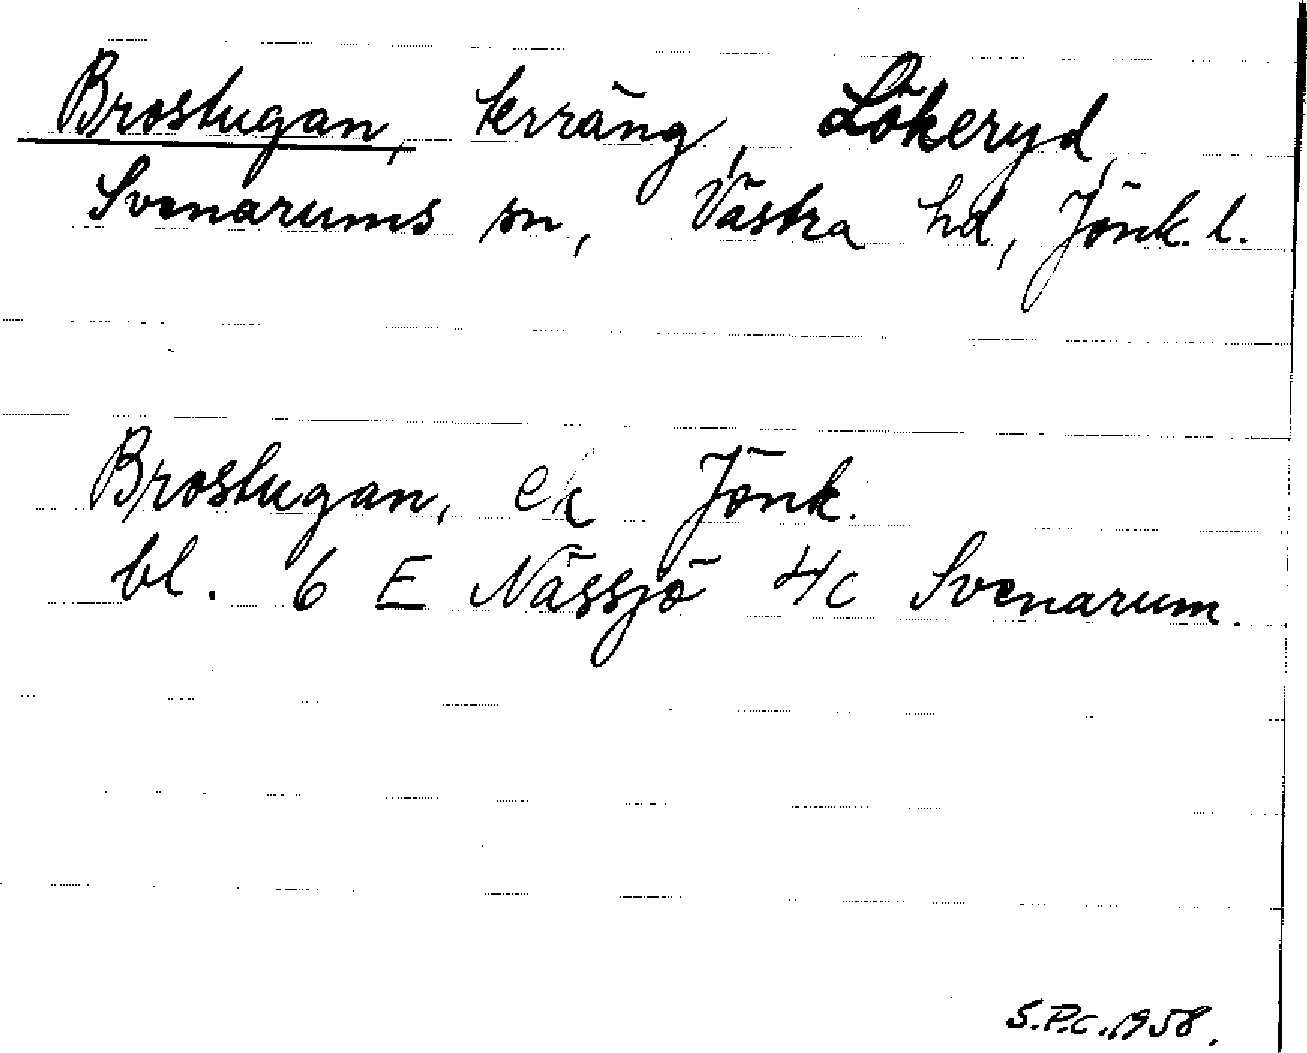 Brostugan, terräng, Lökeryd,
Svenarums sn, Västra hd, Jönk. l.
Brostugan, ek Jönk.
bl. 6 E Nässjö 4c Svenarum.
S.P.C. 1958.